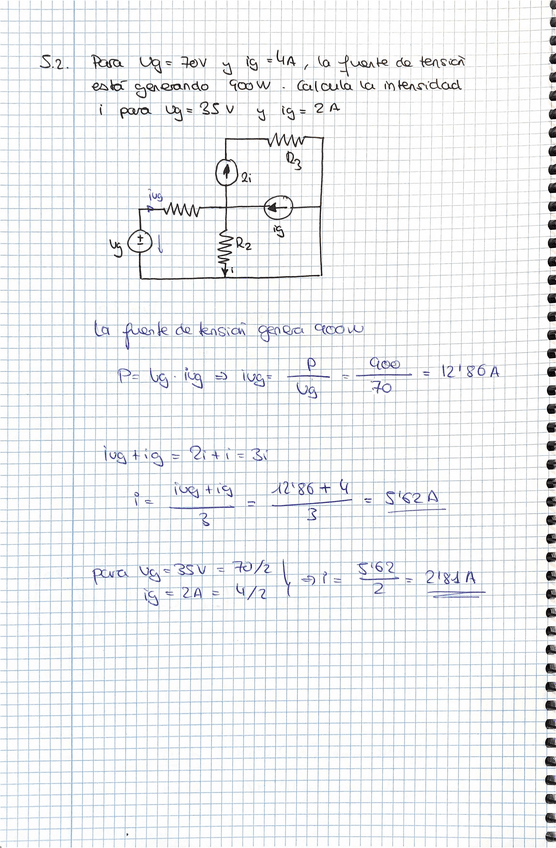 5.2. Para Ug = 70V y ig = 4A, la fuente de tensión
está generando 900W. Calcula la intensidad
i para Ug = 35V y ig = 2A
R3
2i
iug
ig
Ug
R2
i
La fuente de tensión genera 900W
P = Ug · iug ⇒ iug = P/Ug = 900/70 = 12'86A
iug + ig = 2i + i = 3i
i = (iug + ig)/3 = (12'86 + 4)/3 = 5'62A
para Ug = 35V = 70/2
ig = 2A = 4/2
⇒ i = 5'62/2 = 2'81A